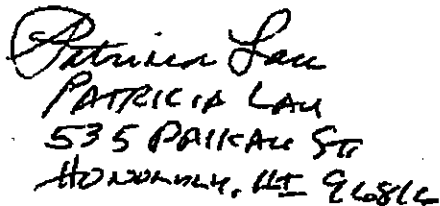 Patricia Lau
PATRICIA LAU
535 PAIKAU ST
HONOLULU, HI 96816